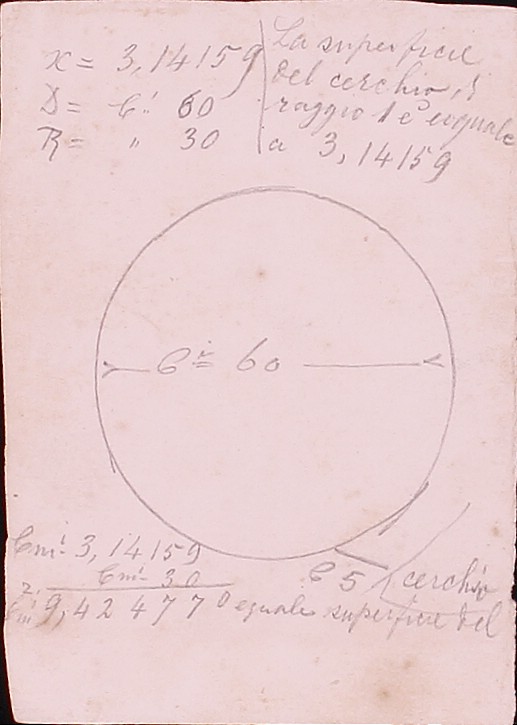 x = 3,14159
D = C.i 60
R = " 30
La superficie
del cerchio, di
raggio 1 è eguale
a 3,14159
C.i 60
Cm.i 3,14159
Cm.i 30
9,424770 eguale superficie del
C 5 cerchio